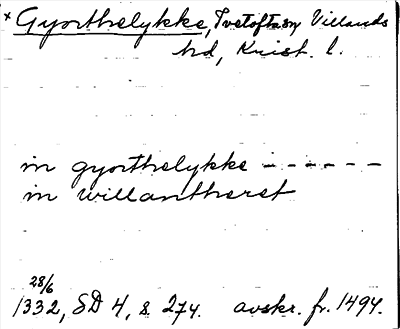 × Gyorthelykke, Tvetofta sn Villands
hd, Krist. l.
in gyorthelykke - - - - - -
in willantheret
28/6
1332, SD 4, s. 274. avskr. fr. 1494.